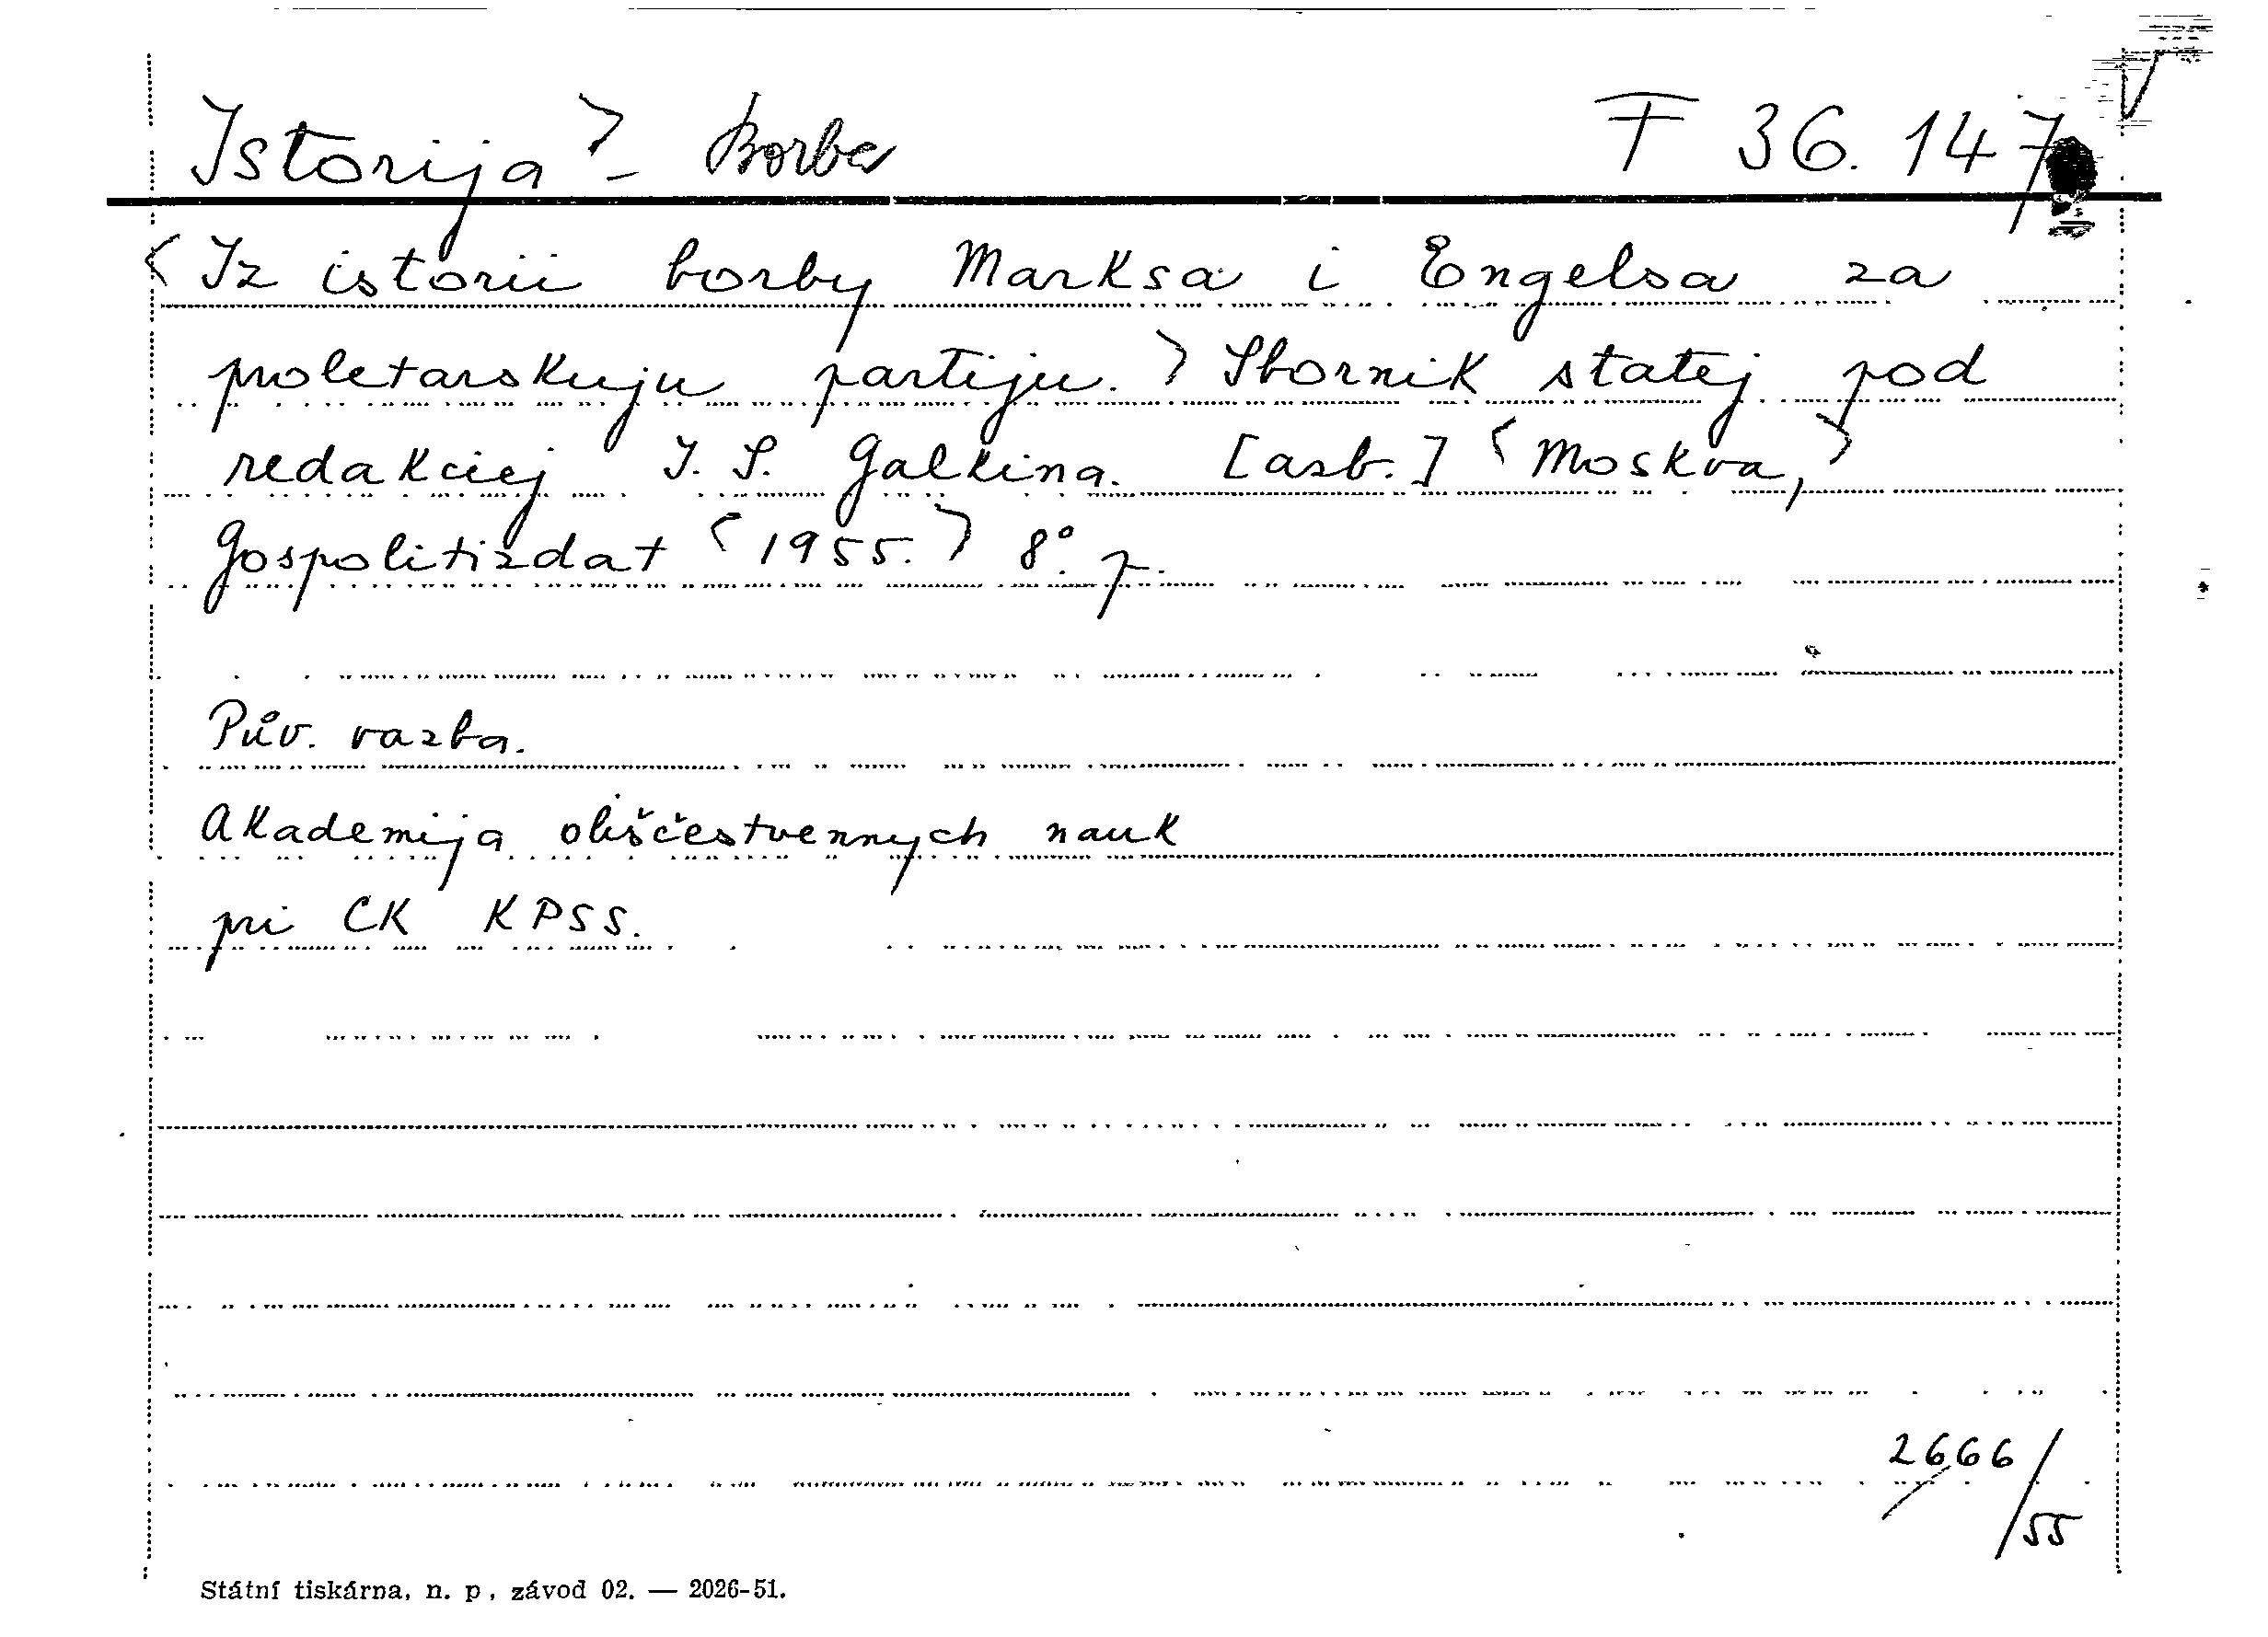 Istorija > - Borba F 36.147
< Iz istorii borby Marksa i Engelsa za
proletarskuju partiju. > Sbornik statej pod
redakciej I. S. Galkina. [azb.] < Moskva, >
Gospolitizdat < 1955. > 8° p.
Pův. vazba.
Akademija obščestvennych nauk
pri CK KPSS.
2666/55
Státní tiskárna, n. p., závod 02. — 2026-51.